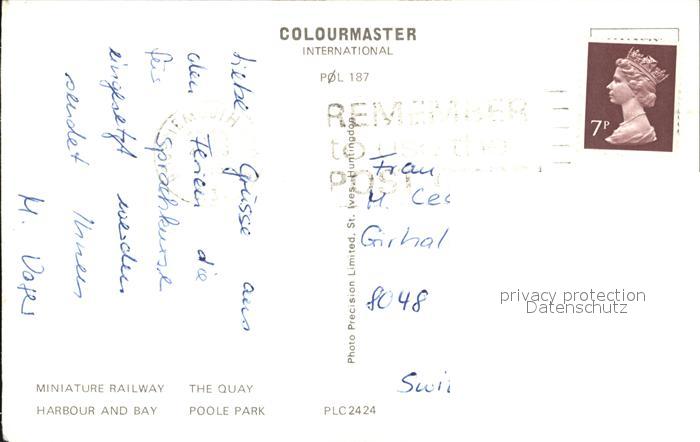 COLOURMASTER
INTERNATIONAL
PØL 187
REMEMBER
to use the
POST
7P
Liebe Grüsse aus
den Ferien die
für Sprachkurse
eingesetzt werden
sendet Ihnen
M.
Frau
M. Cec
Girhal
8048
Swi
Photo Precision Limited, St. Ives, Huntingdon
privacy protection
Datenschutz
MINIATURE RAILWAY THE QUAY
HARBOUR AND BAY POOLE PARK PLC2424